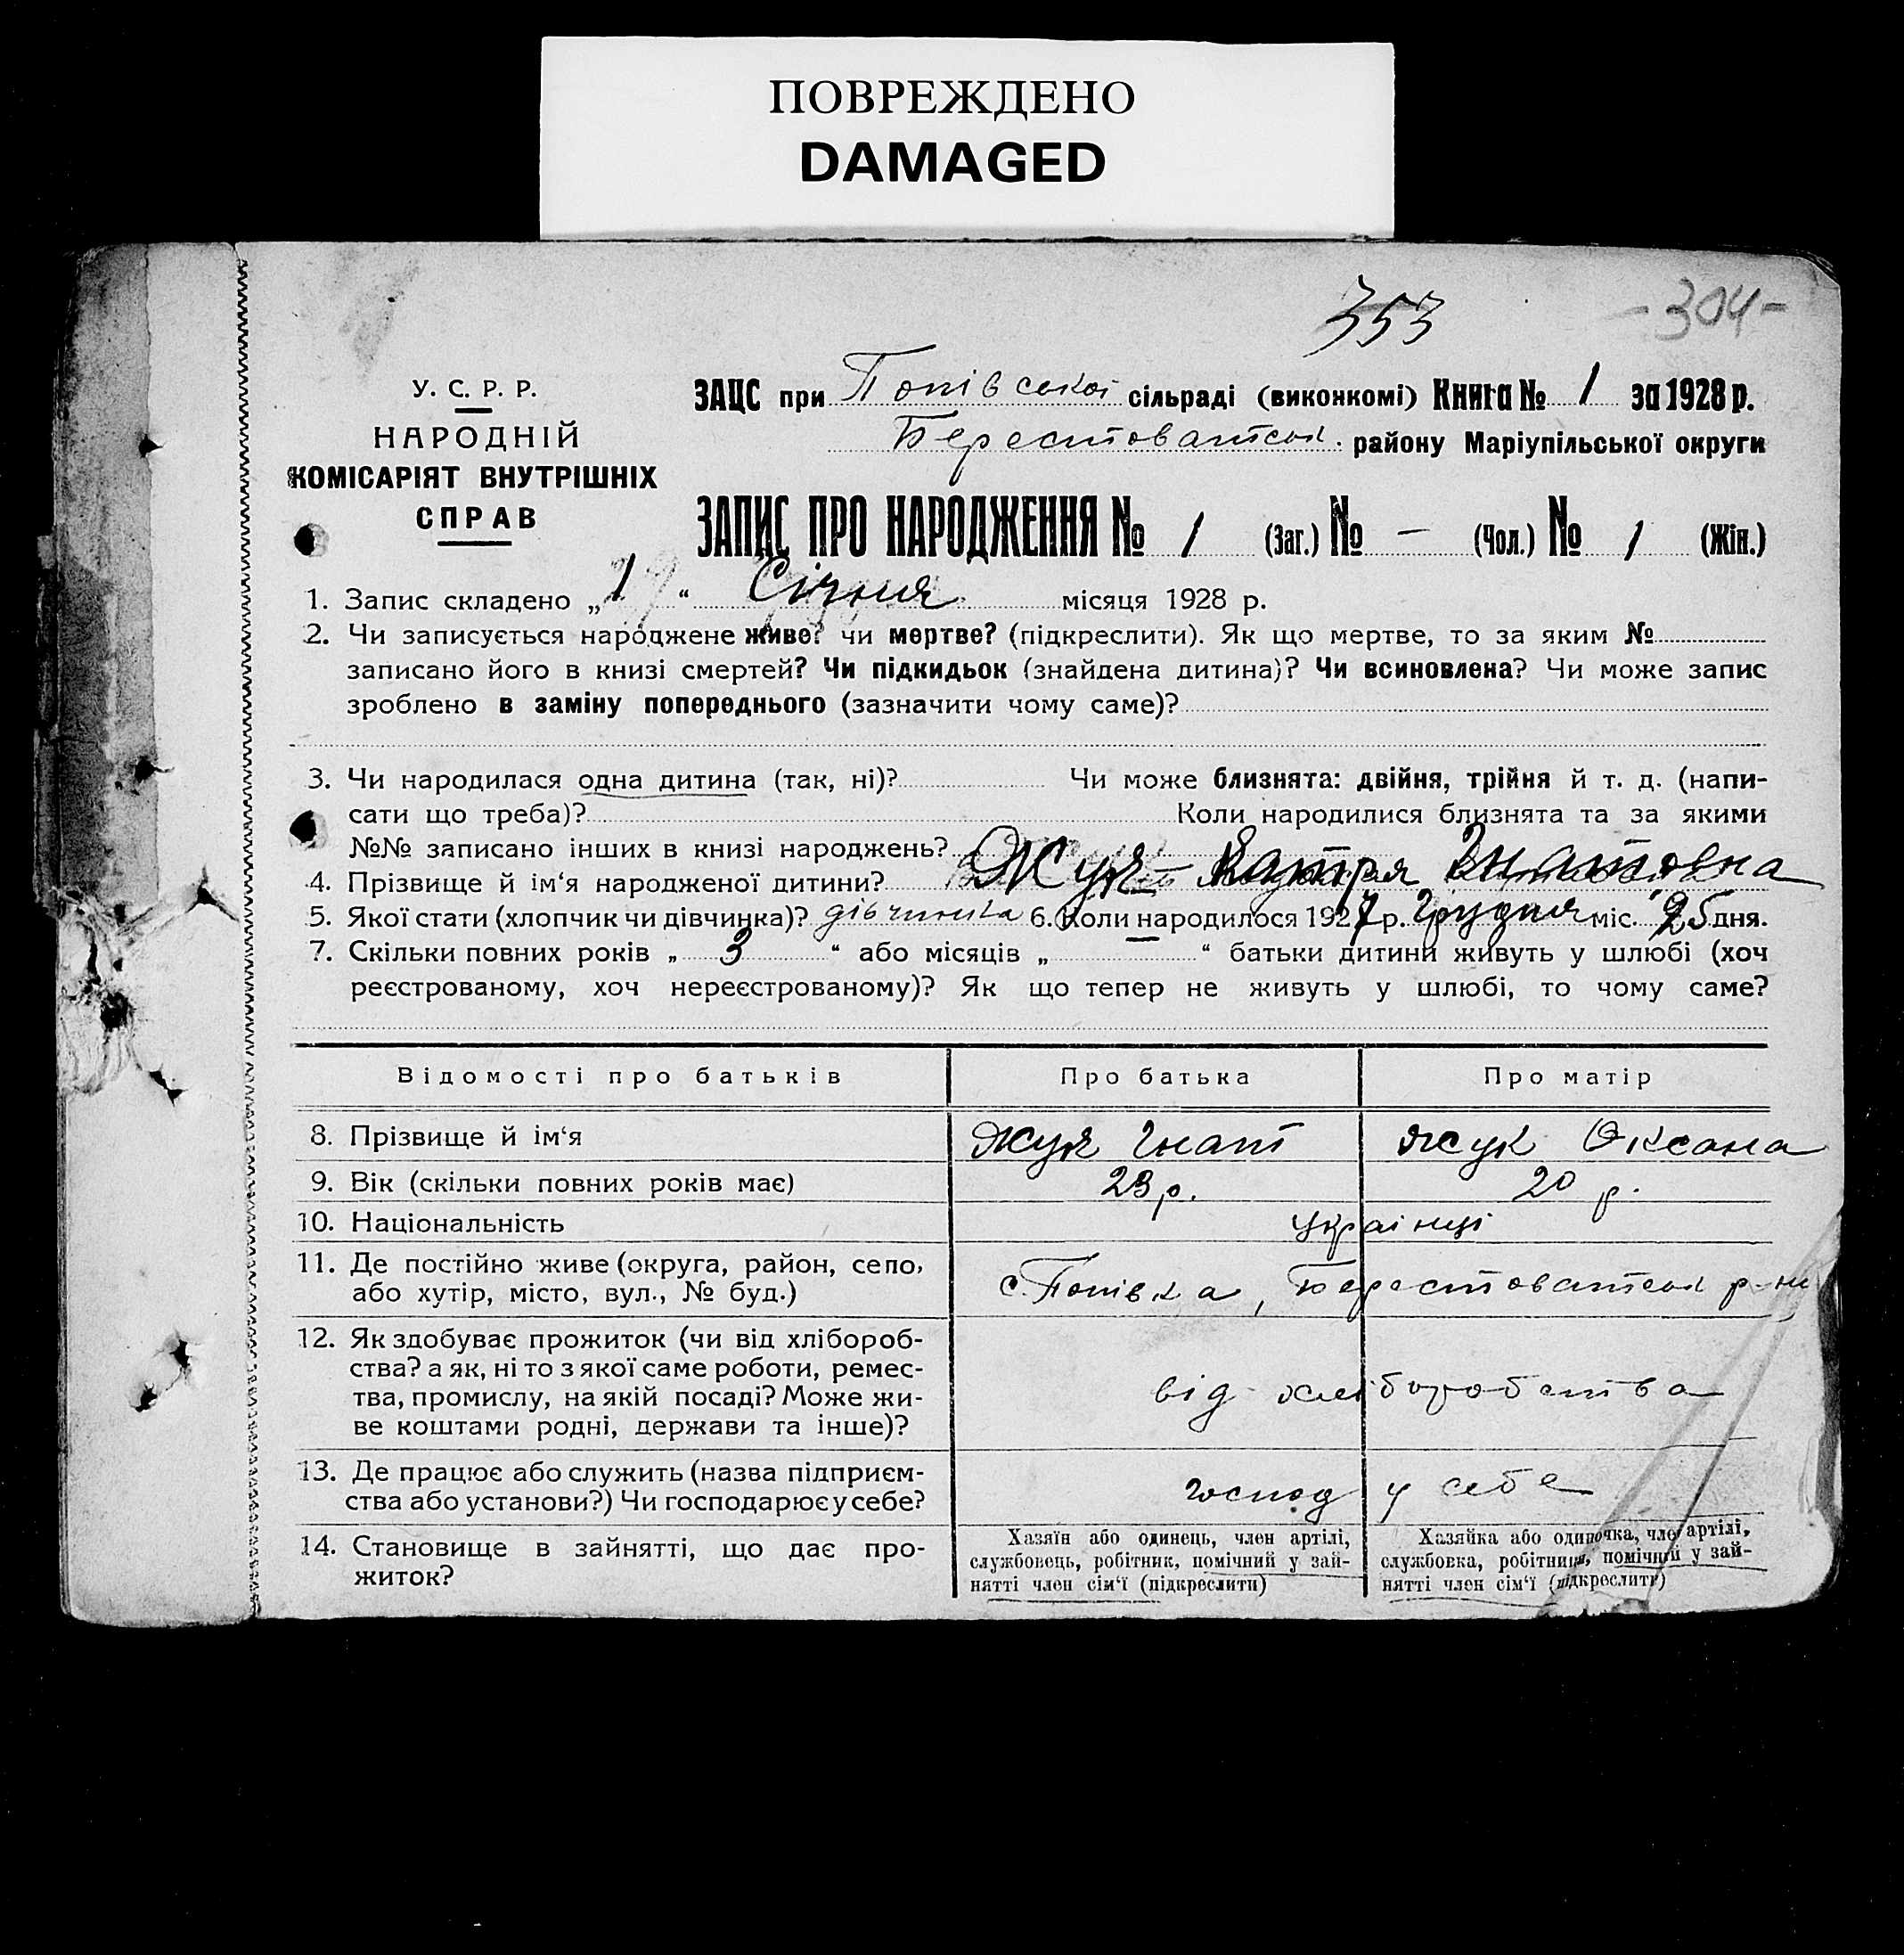 ПОВРЕЖДЕНО
DAMAGED
353
-304-
У. С. Р. Р.
НАРОДНІЙ
КОМІСАРІЯТ ВНУТРІШНІХ
СПРАВ
ЗАЦС при Попівської сільраді (виконкомі) Книга № 1 за 1928 р.
Берестоватськ. району Маріупільської округи
ЗАПИС ПРО НАРОДЖЕННЯ № 1 (Заг.) № — (Чол.) № 1 (Жін.)
1. Запис складено „1“ Січня місяця 1928 р.
2. Чи записується народжене живе? чи мертве? (підкреслити). Як що мертве, то за яким №
записано його в книзі смертей? Чи підкидьок (знайдена дитина)? Чи всиновлена? Чи може запис
зроблено в заміну попереднього (зазначити чому саме)?
3. Чи народилася одна дитина (так, ні)? Чи може близнята: двійня, трійня й т. д. (напи-
сати що треба)? Коли народилися близнята та за якими
№№ записано інших в книзі народжень?
4. Прізвище й ім‘я народженої дитини? Жук Катря Гнатовна
5. Якої стати (хлопчик чи дівчинка)? дівчинка 6. Коли народилося 1927 р. Грудня міс. 25 дня.
7. Скільки повних років „ 3 “ або місяців „ — “ батьки дитини живуть у шлюбі (хоч
реєстрованому, хоч нереєстрованому)? Як що тепер не живуть у шлюбі, то чому саме?
Відомості про батьків Про батька Про матір
8. Прізвище й ім‘я Жук Гнат Жук Оксана
9. Вік (скільки повних років має) 23 р. 20 р.
10. Національність Українці
11. Де постійно живе (округа, район, село,
або хутір, місто, вул., № буд.) с. Попівка, Берестоватськ р-ну
12. Як здобуває прожиток (чи від хлібороб-
ства? а як, ні то з якої саме роботи, ремес-
тва, промислу, на якій посаді? Може жи-
ве коштами родні, держави та інше)? від хліборобства
13. Де працює або служить (назва підприєм-
ства або установи?) Чи господарює у себе? господ у себе
14. Становище в зайнятті, що дає про-
житок?
Хазяїн або одинець, член артілі,
службовець, робітник, помічний у зай-
нятті член сім‘ї (підкреслити)
Хазяйка або одиночка, член артілі,
службовка, робітниця, помічний у зай-
нятті член сім‘ї (підкреслити)